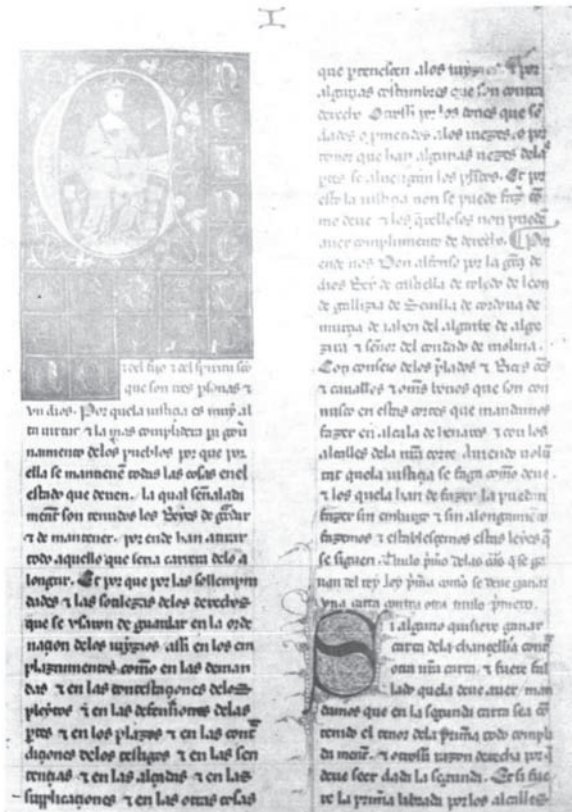 I
⁊ del fijo ⁊ del spiritu sco
que son tres psonas ⁊
vn dios. Por quela iusticia es muy al
ta uirtut ⁊ la mas complidera pa gou
namiento delos pueblos por que por
ella se mantenen todas las cosas enel
estado que deuen. la qual señalada
ment son tenudos los Reyes de guardar
⁊ de mantener. por ende han atirar
todo aquello que seria carrera dela a
longar. Et por que por las sollempni
dades ⁊ las sotilezas delos derechos
que se vsaron de guardar en la orde
naçion delos iuyzios assi en los em
plazamientos como en las deman
das ⁊ en las contestaçiones delos
pleytos ⁊ en las defensiones delas
ptes ⁊ en los plazos ⁊ en las cont
diçiones delos testigos ⁊ en las sen
tençias ⁊ en las alçadas ⁊ en las
suplicaçiones ⁊ en las otras cosas
que ptenesçen alos iuyzios. ⁊ por
algunas costumbres que son contra
derecho. Otrossi por los dones que son
dados o pmetidos alos iuezes. o por
temor que han algunas uezes delas
ptes se aluengan los pleitos. Et por
esto la iustiçia non se puede fazer co
mo deue ⁊ los querellosos non pueden
auer complimiento de derecho. Por
ende nos Don alfonso por la gra de
dios Rey de castiella de toledo de leon
de gallizia de Seuilla de cordoua de
murçia de iahen del algarbe de alge
zira ⁊ señor del condado de molina.
Con conseio delos plados ⁊ Ricos oms
⁊ caualleros ⁊ oms bonos que son con
nusco en estas cortes que mandamos
fazer en alcala de henares ⁊ con los
alcalles dela nra corte. Auiendo uolun
tat quela iustiçia se faga como deue.
⁊ los quela han de fazer la puedan
fazer sin embargo ⁊ sin alongamiento
fazemos ⁊ establesçemos estas leyes que
se siguen. Titulo pmo delas cartas que se ga
nan del rey ley pma como se deue ganar
vna carta contra otra titulo pmero.
Si alguno quisiere ganar
carta dela chançelleria contra
otra nra carta. ⁊ fuere fal
lado quela deue auer. man
damos que en la segunda carta sea con
tenido el tenor dela Prima todo compli
da ment. ⁊ otrossi razon derecha por que
deue seer dada la segunda. Et si fue
re la prima librada por los alcalles